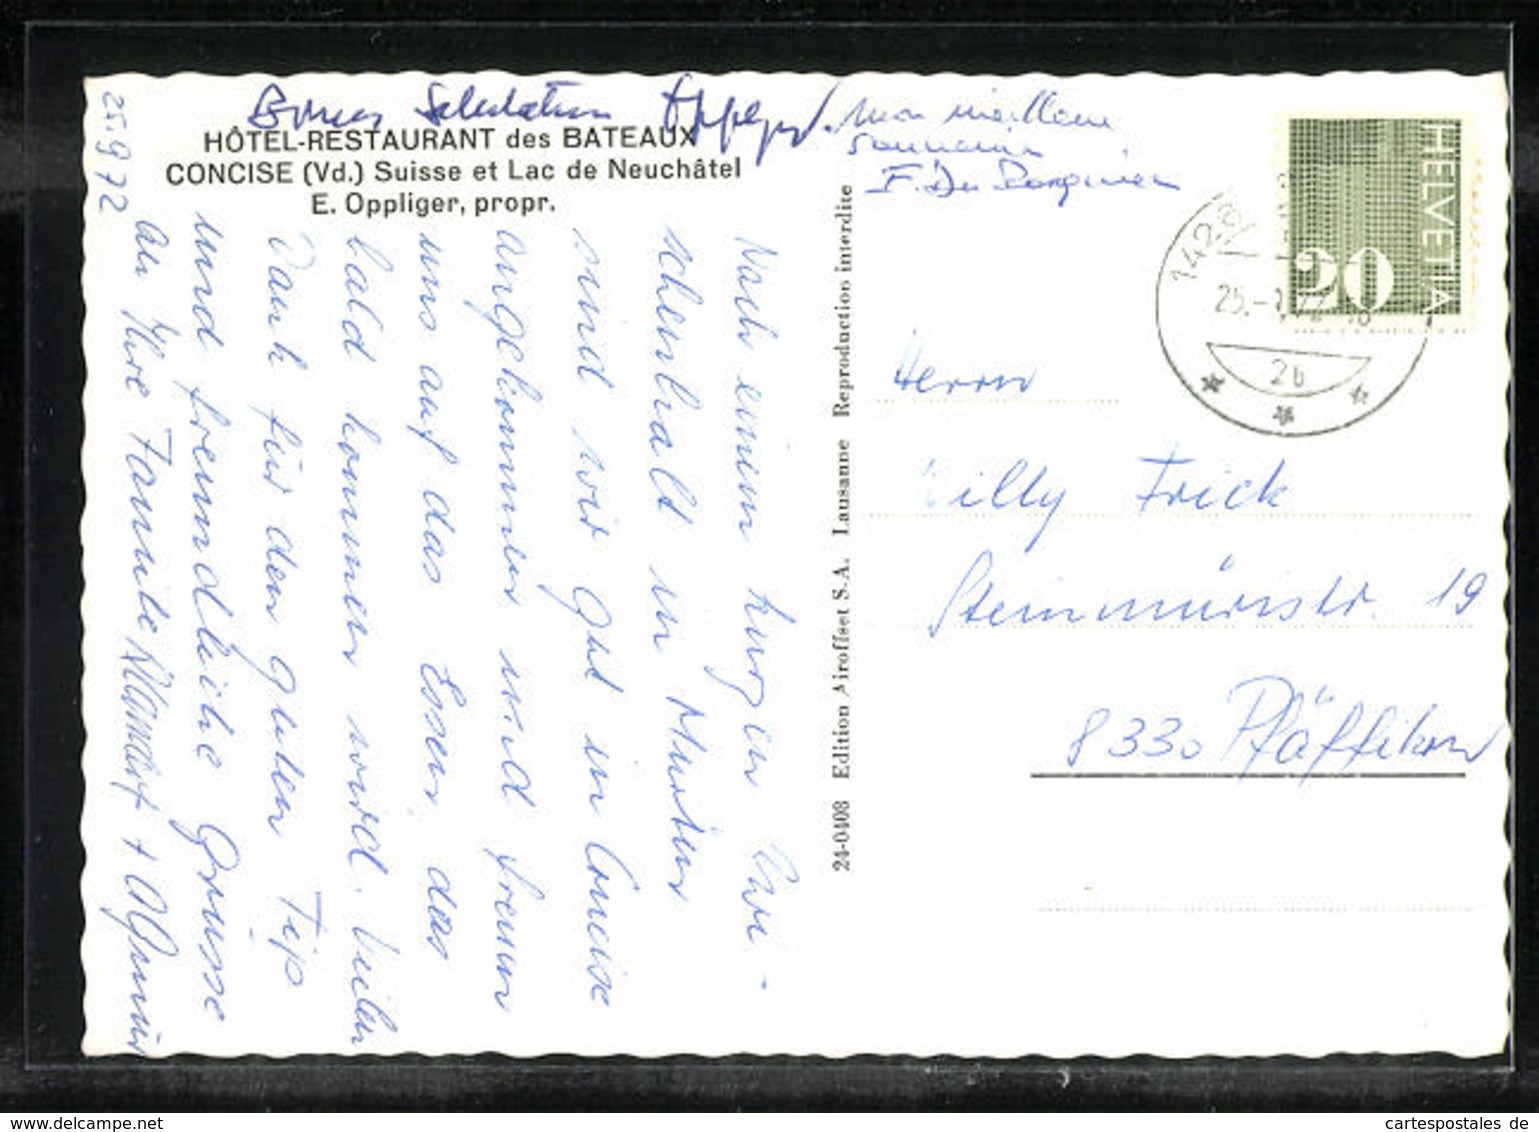 25.9.72
Bonnes Salutations Oppliger.
mon meilleur
souvenir
HÔTEL-RESTAURANT des BATEAUX
CONCISE (Vd.) Suisse et Lac de Neuchâtel
E. Oppliger, propr.
Nach einem kurzen Zwi-
schenhalt in Murten
sind wir gut in Concise
angekommen und freuen
uns auf das Essen, das
bald kommen wird. Vielen
Dank für den guten Tip
und freundliche Grüsse
an Ihre Familie
24-0408 Edition Airoffset S.A. Lausanne Reproduction interdite
HELVETIA
20
1426
25.-
2b
Herrn
Willy Frick
Steinmüristr. 19
8330 Pfäffikon
cartespostales de